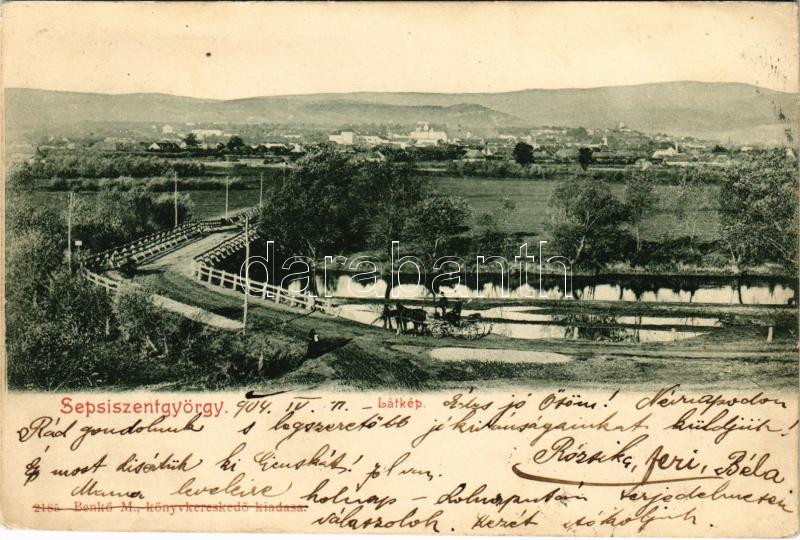 darabanth.com
Sepsiszentgyörgy. 904. IV. 11. - Látkép. Édes jó Ötöm! Névnapodon
Rád gondolunk s legszeretőbb jókivánságainkat küldjük!
Ép most disértük ki Gicuskát! jól van. Rózsika, feri, Béla
Mama levelére holnap - holnapután terjedelmesen
2185 Benkő M., könyvkereskedő kiadása. válaszolok. kezét csókoljuk.